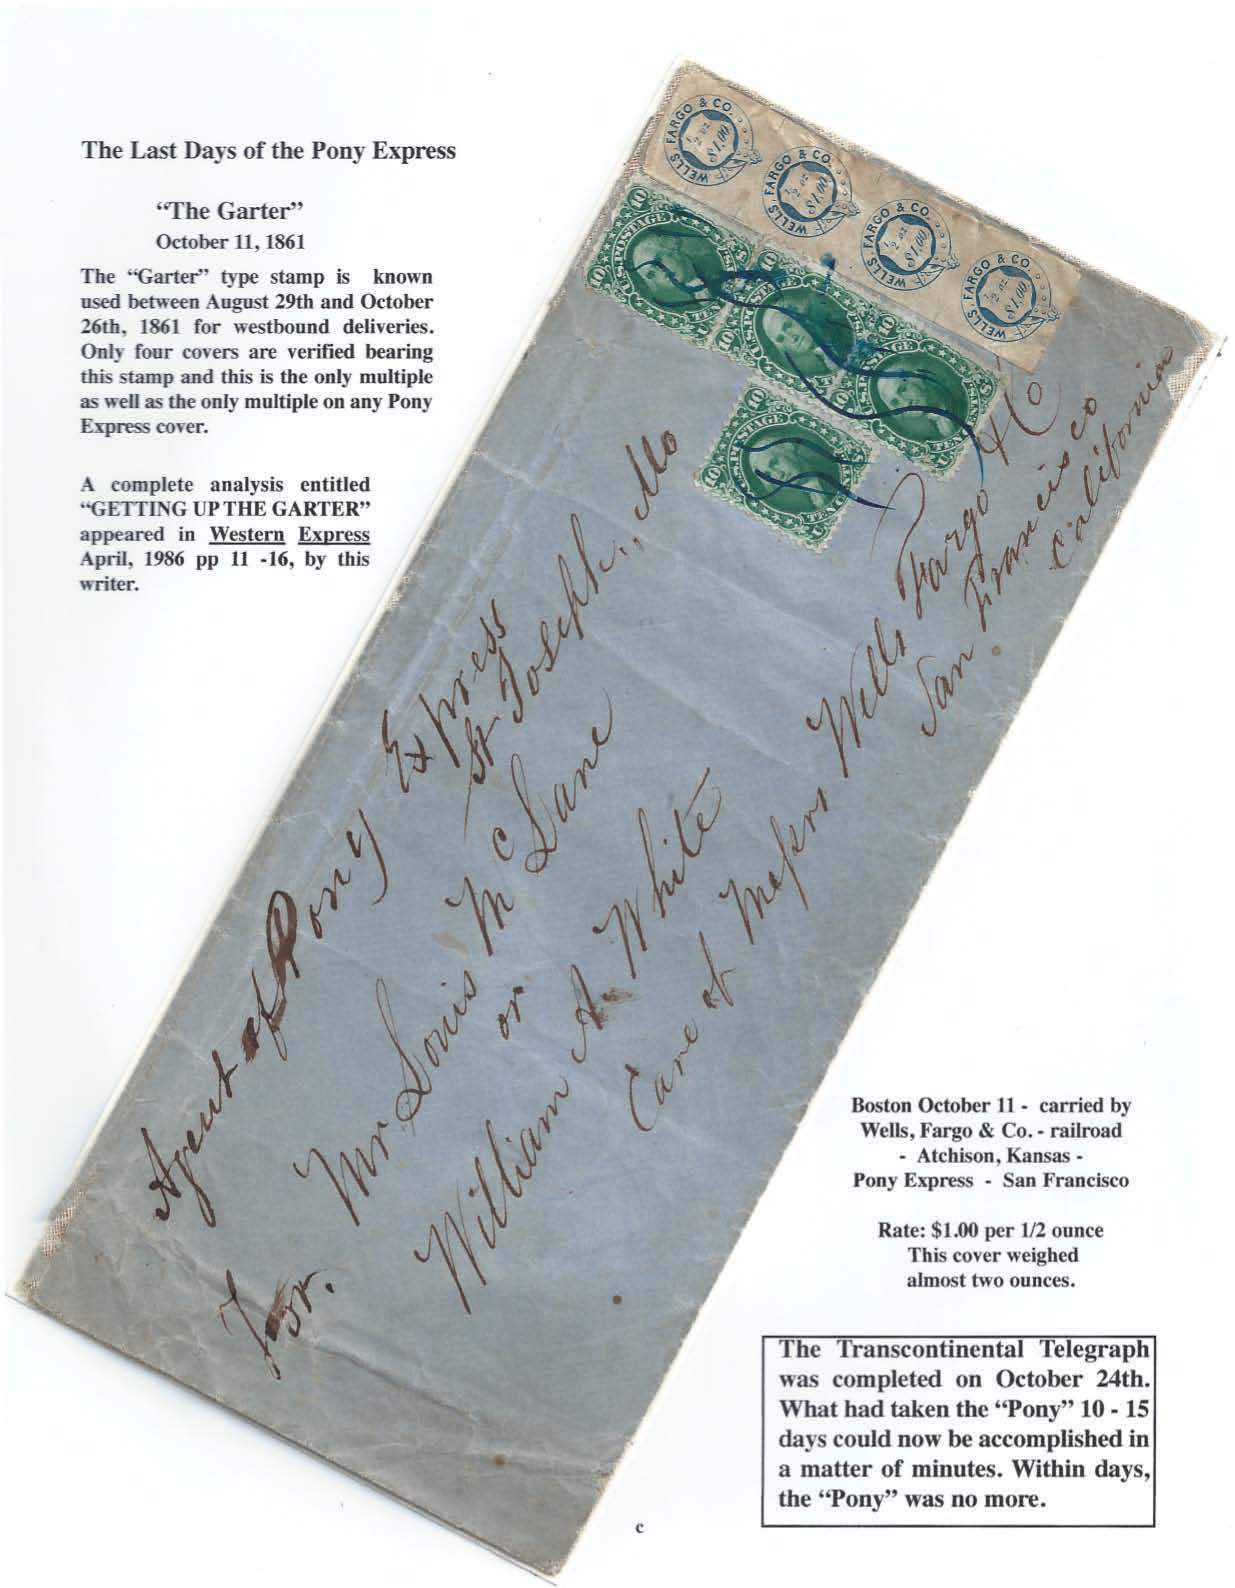 The Last Days of the Pony Express
“The Garter”
October 11, 1861
The “Garter” type stamp is known
used between August 29th and October
26th, 1861 for westbound deliveries.
Only four covers are verified bearing
this stamp and this is the only multiple
as well as the only multiple on any Pony
Express cover.
A complete analysis entitled
“GETTING UP THE GARTER”
appeared in Western Express
April, 1986 pp 11 -16, by this
writer.
WELLS, FARGO & CO.
1/2 oz
$1.00
WELLS, FARGO & CO.
1/2 oz
$1.00
WELLS, FARGO & CO.
1/2 oz
$1.00
WELLS, FARGO & CO.
1/2 oz
$1.00
10 U.S. POSTAGE 10
TEN
10 U.S. POSTAGE 10
10 U.S. POSTAGE
TEN
10 U.S. POSTAGE 10
TEN
Agent of Pony Express
St Joseph., Mo
For. Mr Louis McLane
or
William A. White
Care of Messrs Wells Fargo &Co
San Francisco
California
Boston October 11 - carried by
Wells, Fargo & Co. - railroad
- Atchison, Kansas -
Pony Express - San Francisco
Rate: $1.00 per 1/2 ounce
This cover weighed
almost two ounces.
The Transcontinental Telegraph
was completed on October 24th.
What had taken the “Pony” 10 - 15
days could now be accomplished in
a matter of minutes. Within days,
the “Pony” was no more.
c